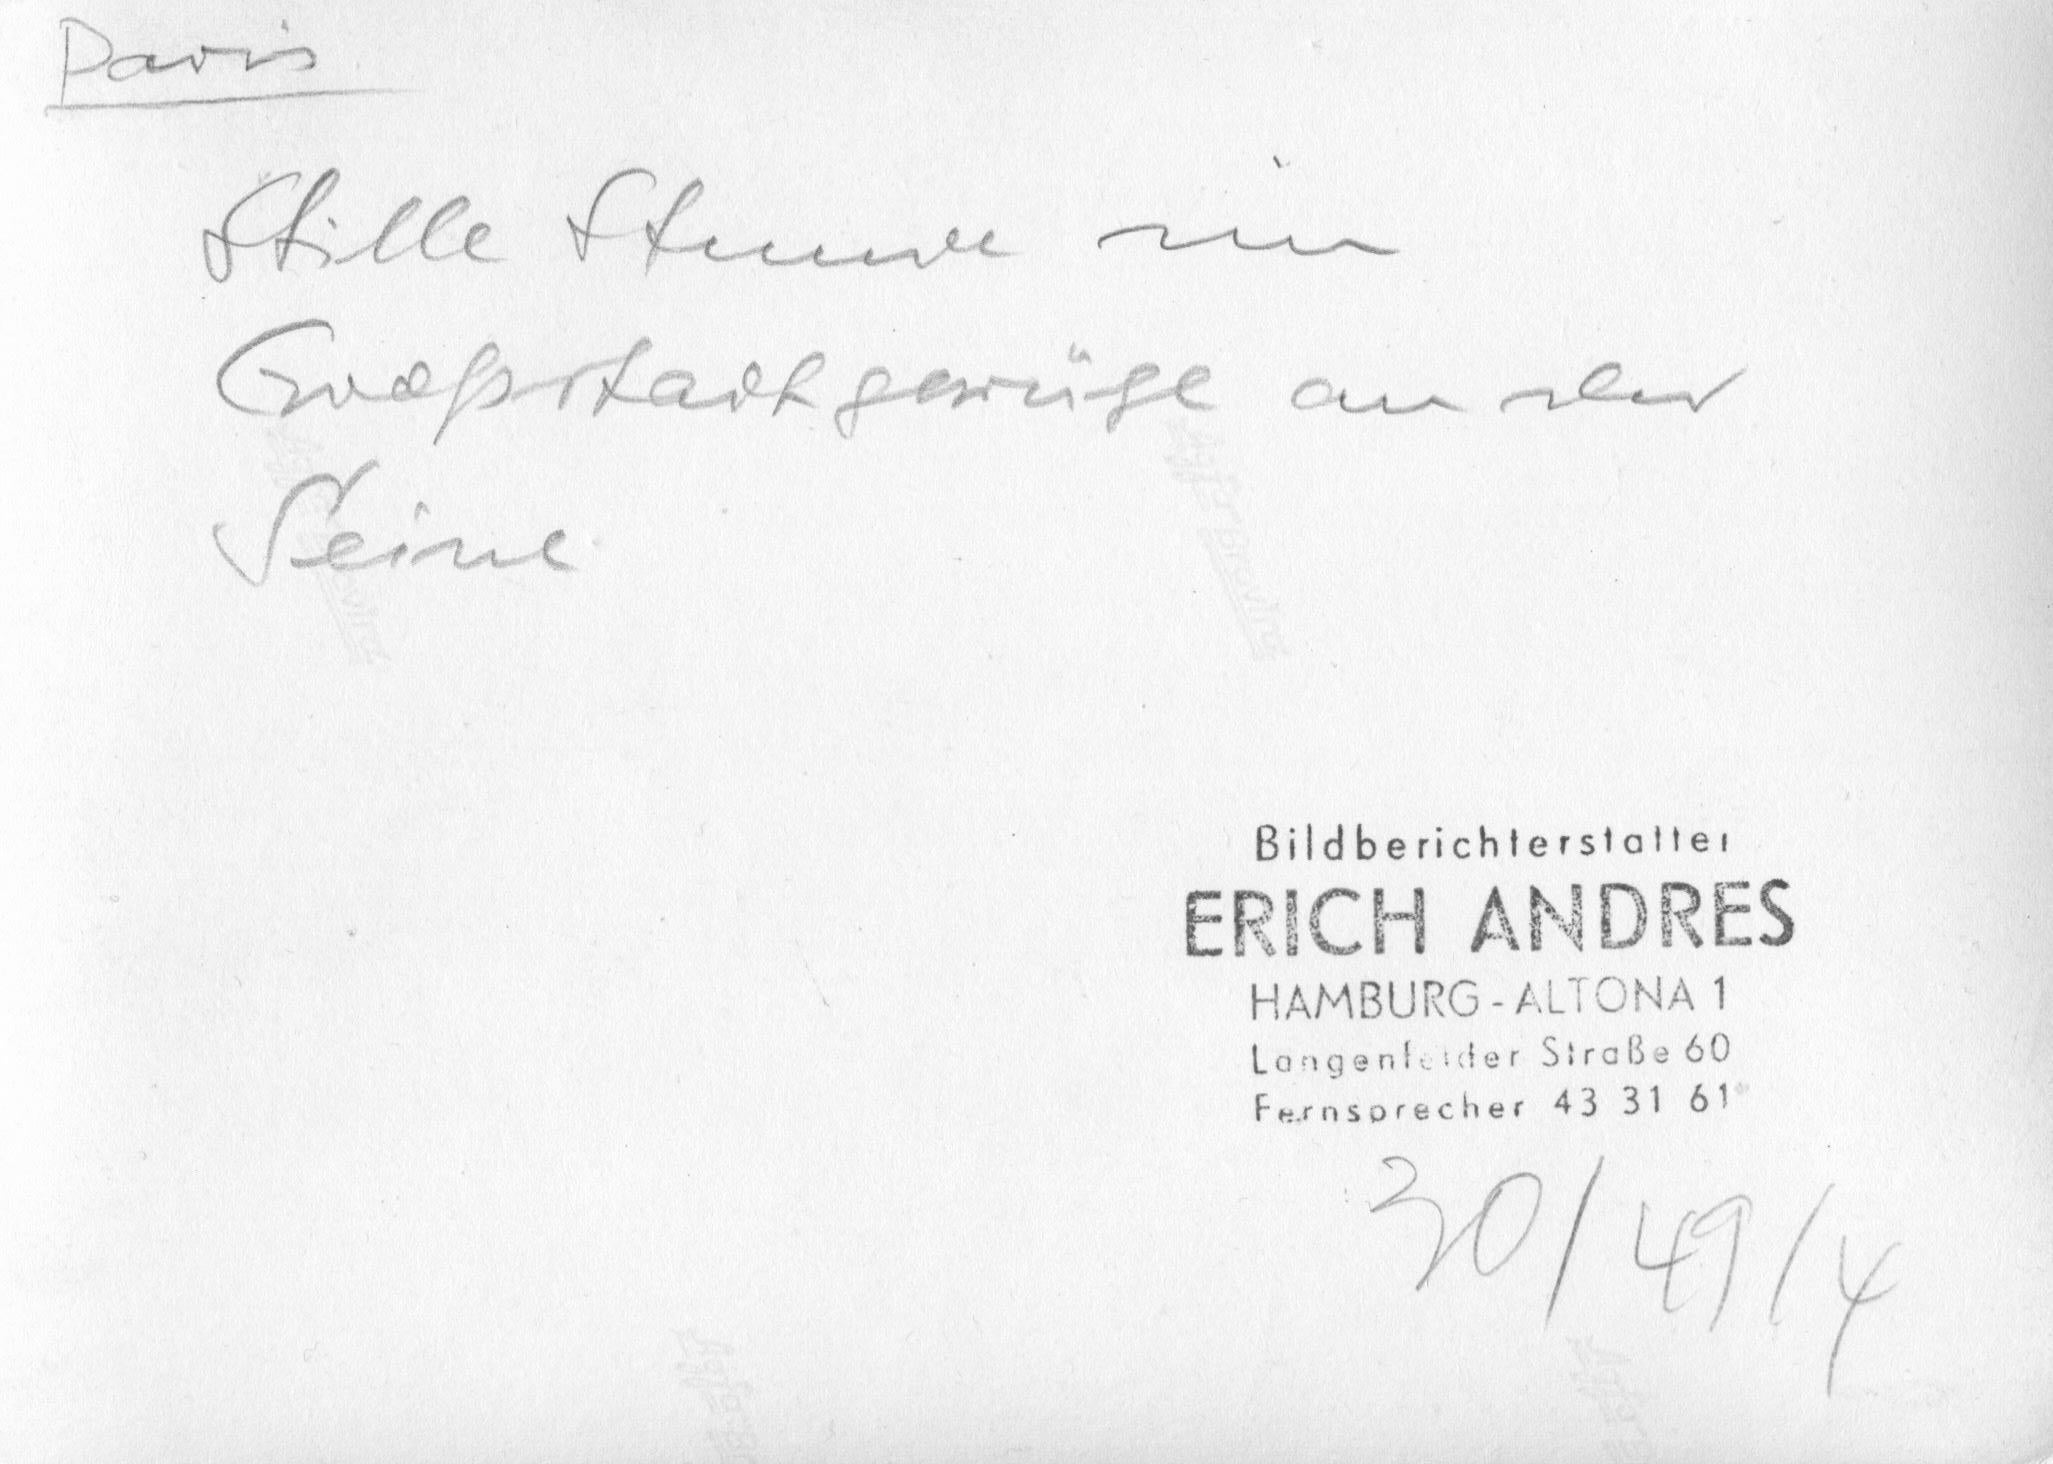 Paris
Stille Stunde im
Großstadtgewüge an der
Seine
Bildberichterstatter
ERICH ANDRES
HAMBURG-ALTONA 1
Langenfelder Straße 60
Fernsprecher 43 31 61
30/49/4